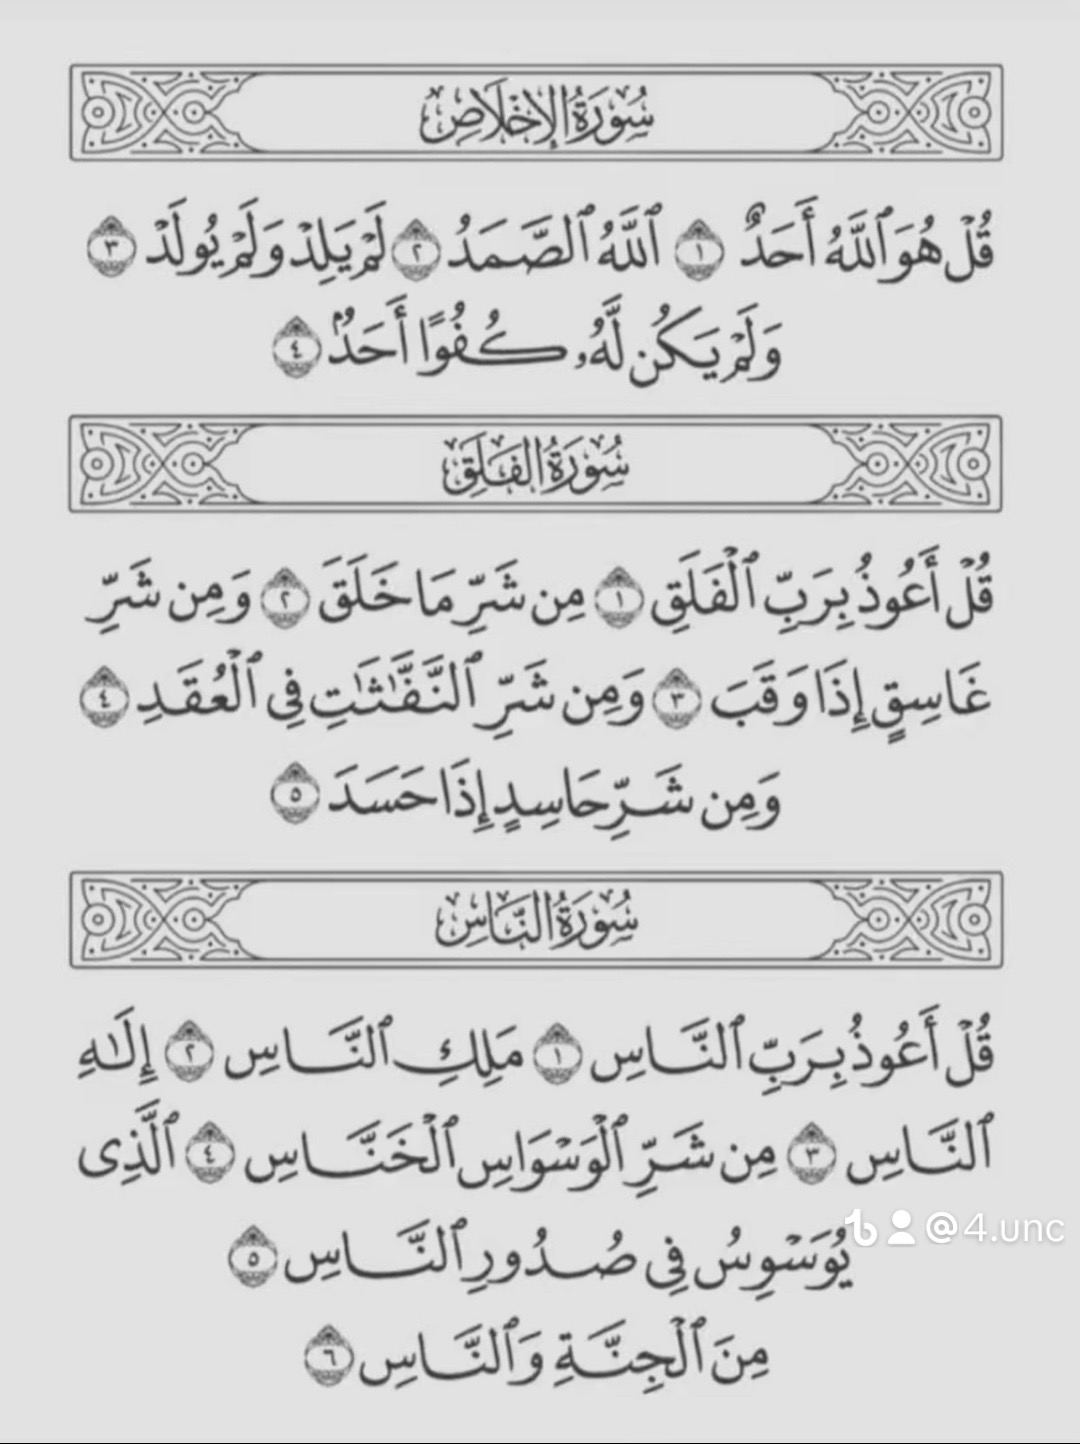 سُورَةُ الإِخْلَاصِ
قُلْ هُوَ ٱللَّهُ أَحَدٌ ١ ٱللَّهُ ٱلصَّمَدُ ٢ لَمْ يَلِدْ وَلَمْ يُولَدْ ٣
وَلَمْ يَكُن لَّهُۥ كُفُوًا أَحَدٌۢ ٤
سُورَةُ الفَلَقِ
قُلْ أَعُوذُ بِرَبِّ ٱلْفَلَقِ ١ مِن شَرِّ مَا خَلَقَ ٢ وَمِن شَرِّ
غَاسِقٍ إِذَا وَقَبَ ٣ وَمِن شَرِّ ٱلنَّفَّٰثَٰتِ فِى ٱلْعُقَدِ ٤
وَمِن شَرِّ حَاسِدٍ إِذَا حَسَدَ ٥
سُورَةُ النَّاسِ
قُلْ أَعُوذُ بِرَبِّ ٱلنَّاسِ ١ مَلِكِ ٱلنَّاسِ ٢ إِلَٰهِ
ٱلنَّاسِ ٣ مِن شَرِّ ٱلْوَسْوَاسِ ٱلْخَنَّاسِ ٤ ٱلَّذِى
يُوَسْوِسُ فِى صُدُورِ ٱلنَّاسِ ٥
@4.unc
مِنَ ٱلْجِنَّةِ وَٱلنَّاسِ ٦